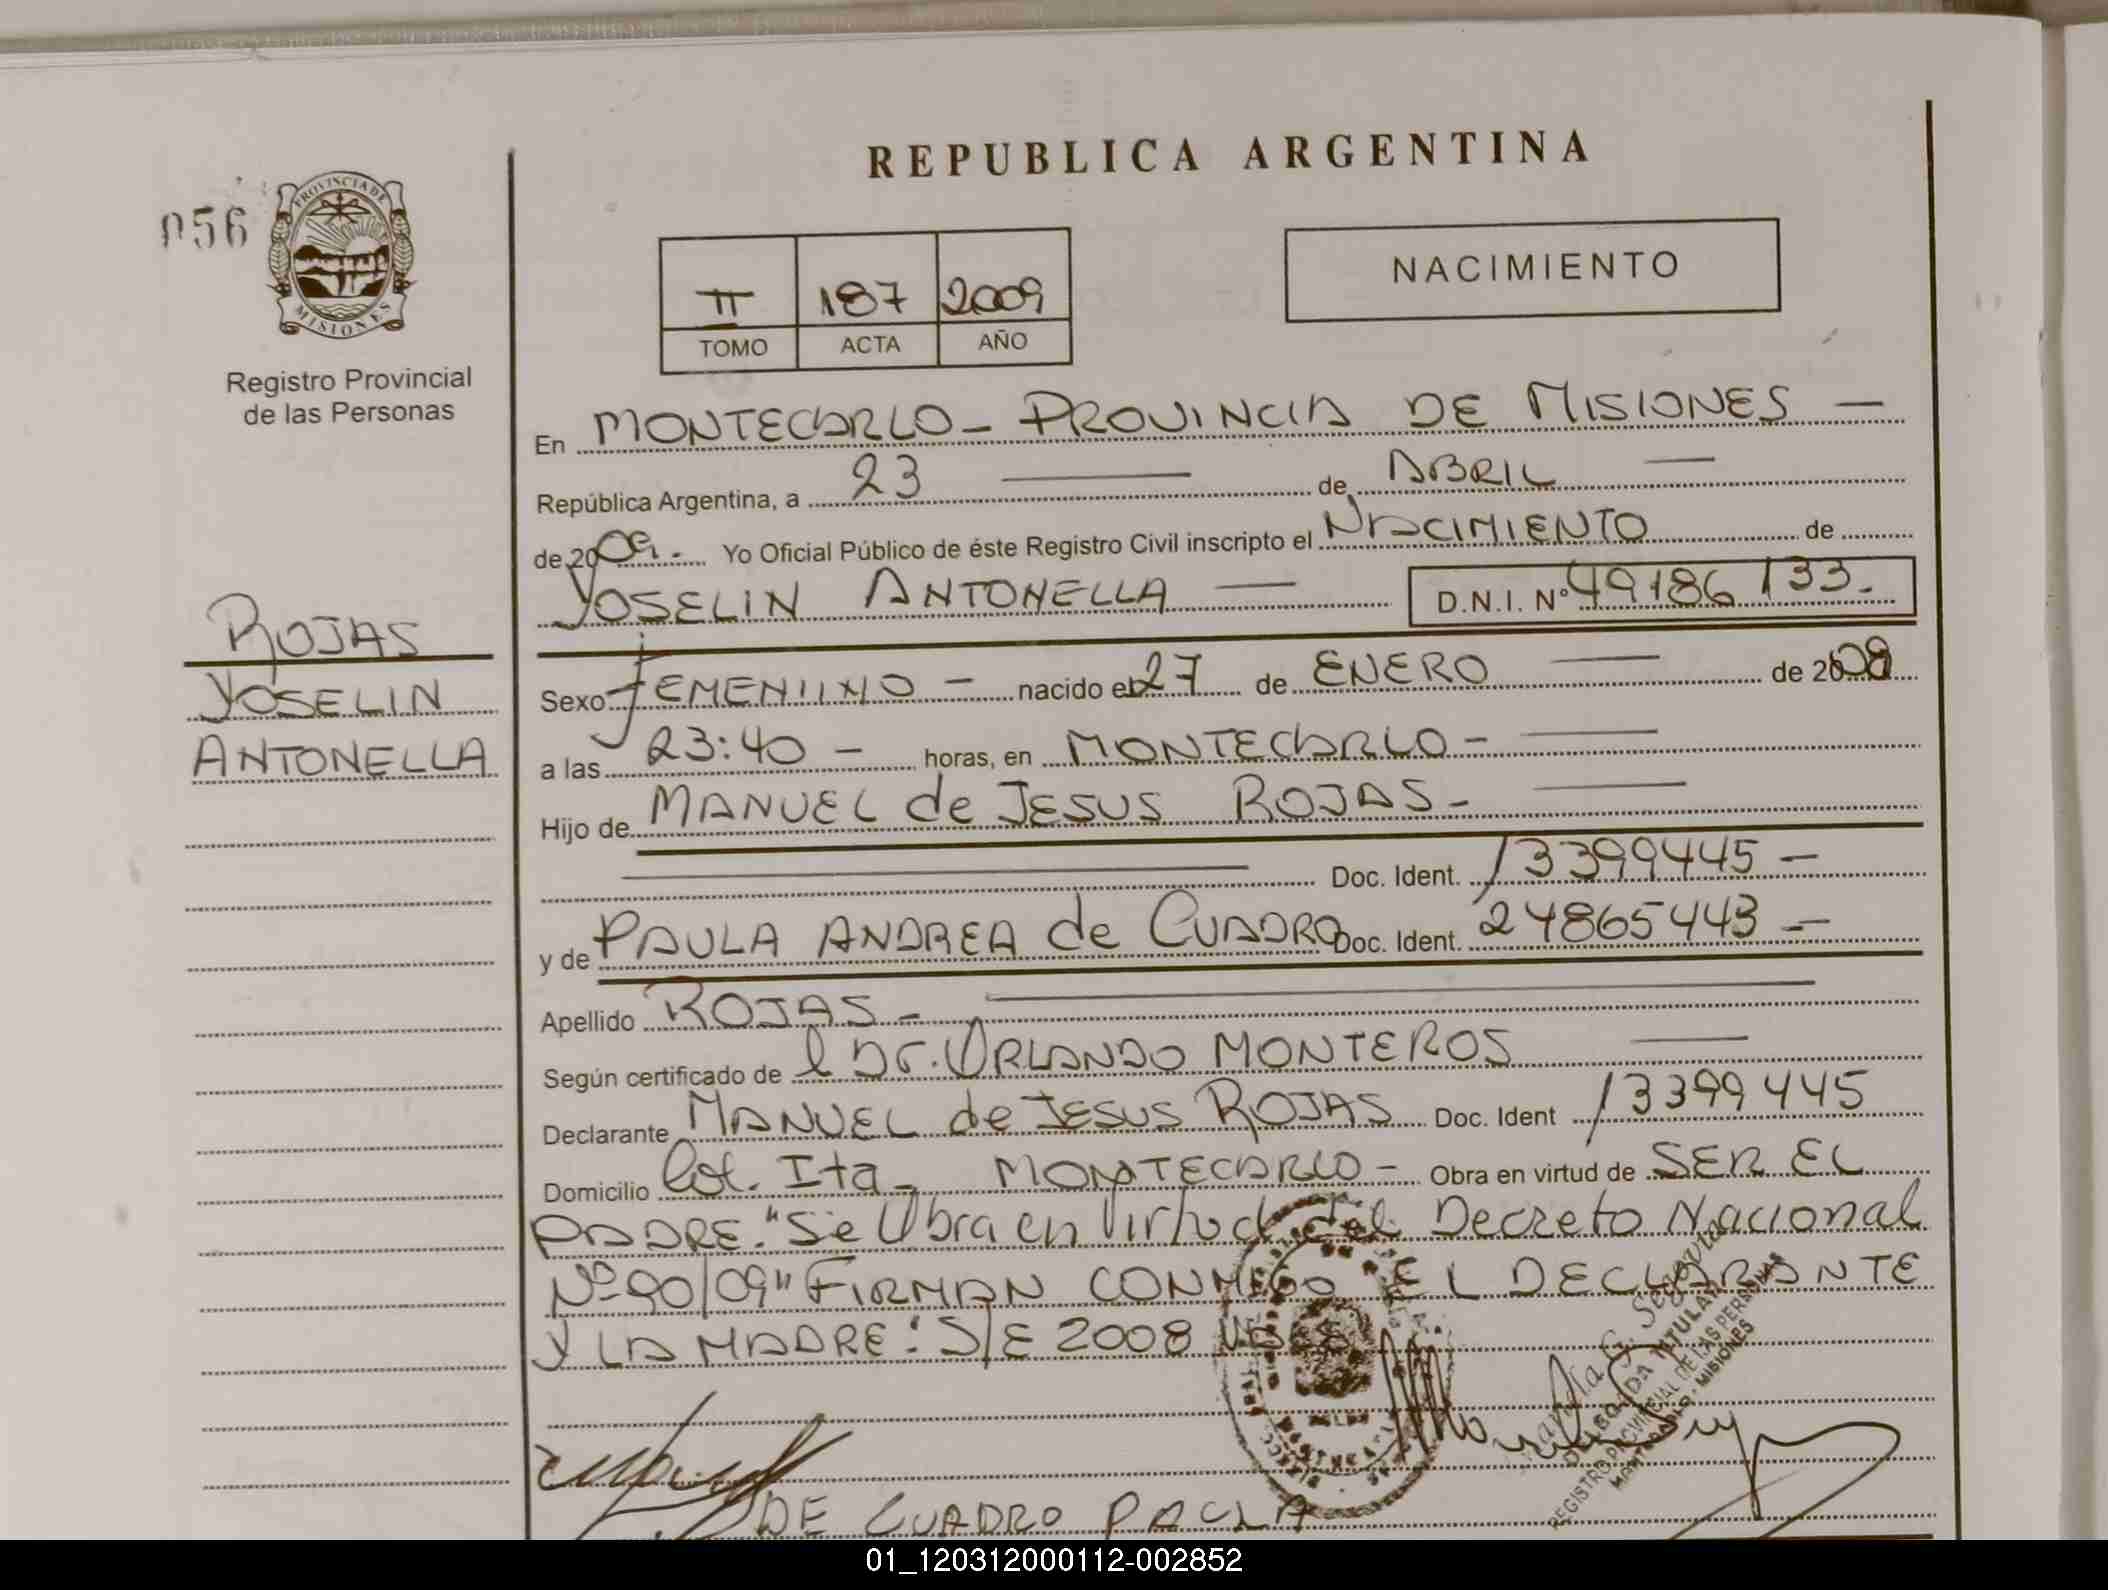 REPUBLICA ARGENTINA
056
PROVINCIA DE
MISIONES
Registro Provincial
de las Personas
II 187 2009
TOMO ACTA AÑO
NACIMIENTO
ROJAS
YOSELIN
ANTONELLA
En MONTECARLO - PROVINCIA DE MISIONES —
República Argentina, a 23 — de ABRIL —
de 2009.- Yo Oficial Público de éste Registro Civil inscripto el NACIMIENTO de
YOSELIN ANTONELLA — D.N.I. Nº 49186133.-
Sexo FEMENIINO - nacido el 27 de ENERO — de 2009
a las 23:40 - horas, en MONTECARLO - —
Hijo de MANUEL de JESUS ROJAS - —
— Doc. Ident. 13399445 -
y de PAULA ANDREA de CUADRO Doc. Ident. 24865443 -
Apellido ROJAS - —
Según certificado de l Dr. ORLANDO MONTEROS —
Declarante MANUEL de JESUS ROJAS Doc. Ident 13399445
Domicilio Col. Ita - MONTECARLO - Obra en virtud de SER EL
PADRE. "Se Obra en Virtud del Decreto Nacional
Nº 90/09" FIRMAN CONMIGO EL DECLARANTE
Y LA MADRE: S/E 2008
G. Segovia
DELEGADA TITULAR
REGISTRO PROVINCIAL DE LAS PERSONAS
MONTECARLO - MISIONES
DE CUADRO PAULA
01_120312000112-002852